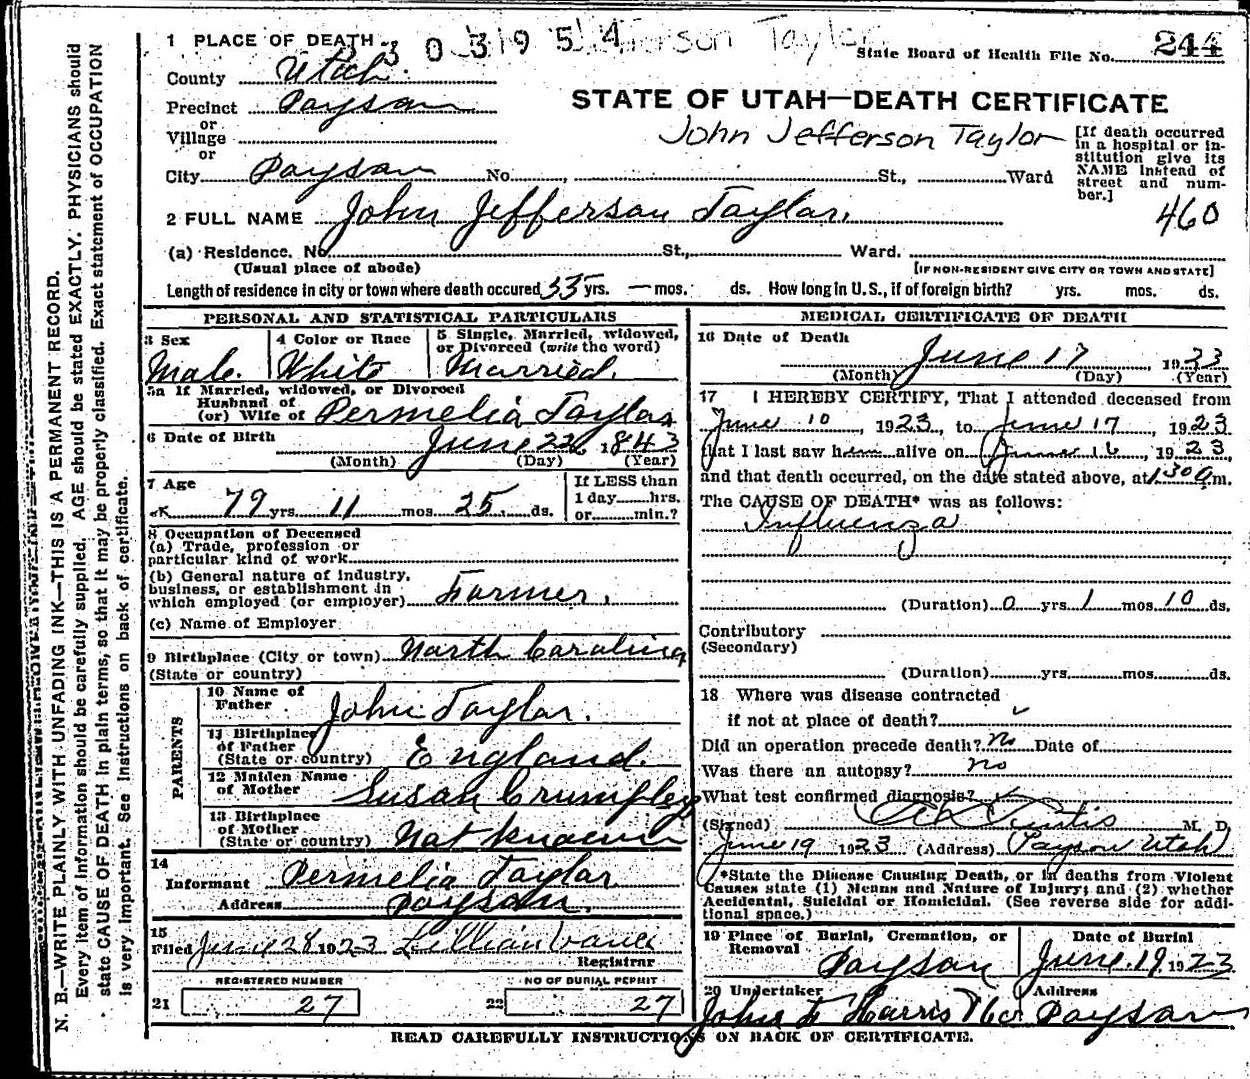 1 PLACE OF DEATH
303954
Jefferson Taylor
State Board of Health File No. 244
County Utah
Precinct Payson
or
Village
or
City Payson No. , St., Ward
STATE OF UTAH—DEATH CERTIFICATE
John Jefferson Taylor
[If death occurred
in a hospital or in-
stitution give its
NAME instead of
street and num-
ber.]
460
2 FULL NAME John Jefferson Taylor.
(a) Residence. No. St., Ward.
(Usual place of abode) [IF NON-RESIDENT GIVE CITY OR TOWN AND STATE]
Length of residence in city or town where death occured 55 yrs. — mos. ds. How long in U. S., if of foreign birth? yrs. mos. ds.
PERSONAL AND STATISTICAL PARTICULARS
3 Sex
Male.
4 Color or Race
White
5 Single, Married, widowed,
or Divorced (write the word)
Married.
5a If Married, widowed, or Divorced
Husband of
(or) Wife of Permelia Taylor
6 Date of Birth
June 22, 1843
(Month) (Day) (Year)
7 Age
79 yrs. 11 mos. 25. ds.
If LESS than
1 day......hrs.
or......min.?
8 Occupation of Deceased
(a) Trade, profession or
particular kind of work
(b) General nature of industry,
business, or establishment in
which employed (or employer) Farmer.
(c) Name of Employer
9 Birthplace (City or town) North Carolina
(State or country)
PARENTS
10 Name of
Father John Taylor.
11 Birthplace
of Father
(State or country) England.
12 Maiden Name
of Mother Susan Crumpley
13 Birthplace
of Mother
(State or country) Not known
14
Informant Permelia Taylor
Address Payson.
15
Filed June 28 1923 Lillian
Registrar
REGISTERED NUMBER
21 27
NO OF BURIAL PERMIT
22 27
MEDICAL CERTIFICATE OF DEATH
16 Date of Death
June 17, 1923
(Month) (Day) (Year)
17 I HEREBY CERTIFY, That I attended deceased from
June 10, 1923, to June 17, 1923
that I last saw him alive on June 16, 1923
and that death occurred, on the date stated above, at 1:30 a m.
The CAUSE OF DEATH* was as follows:
Influenza
(Duration) 0 yrs. 1 mos. 10 ds.
Contributory
(Secondary)
(Duration) yrs. mos. ds.
18 Where was disease contracted
if not at place of death?
Did an operation precede death? no Date of
Was there an autopsy? no
What test confirmed diagnosis?
(Signed) Curtis M. D.
June 19 1923 (Address) Payson Utah
*State the Disease Causing Death, or in deaths from Violent
Causes state (1) Means and Nature of Injury; and (2) whether
Accidental, Suicidal or Homicidal. (See reverse side for addi-
tional space.)
19 Place of Burial, Cremation, or
Removal
Payson
Date of Burial
June 19, 1923
20 Undertaker
John F Harris
Address
Payson
READ CAREFULLY INSTRUCTIONS ON BACK OF CERTIFICATE.
N. B.—WRITE PLAINLY WITH UNFADING INK—THIS IS A PERMANENT RECORD.
Every item of information should be carefully supplied. AGE should be stated EXACTLY. PHYSICIANS should
state CAUSE OF DEATH in plain terms, so that it may be properly classified. Exact statement of OCCUPATION
is very important. See instructions on back of certificate.